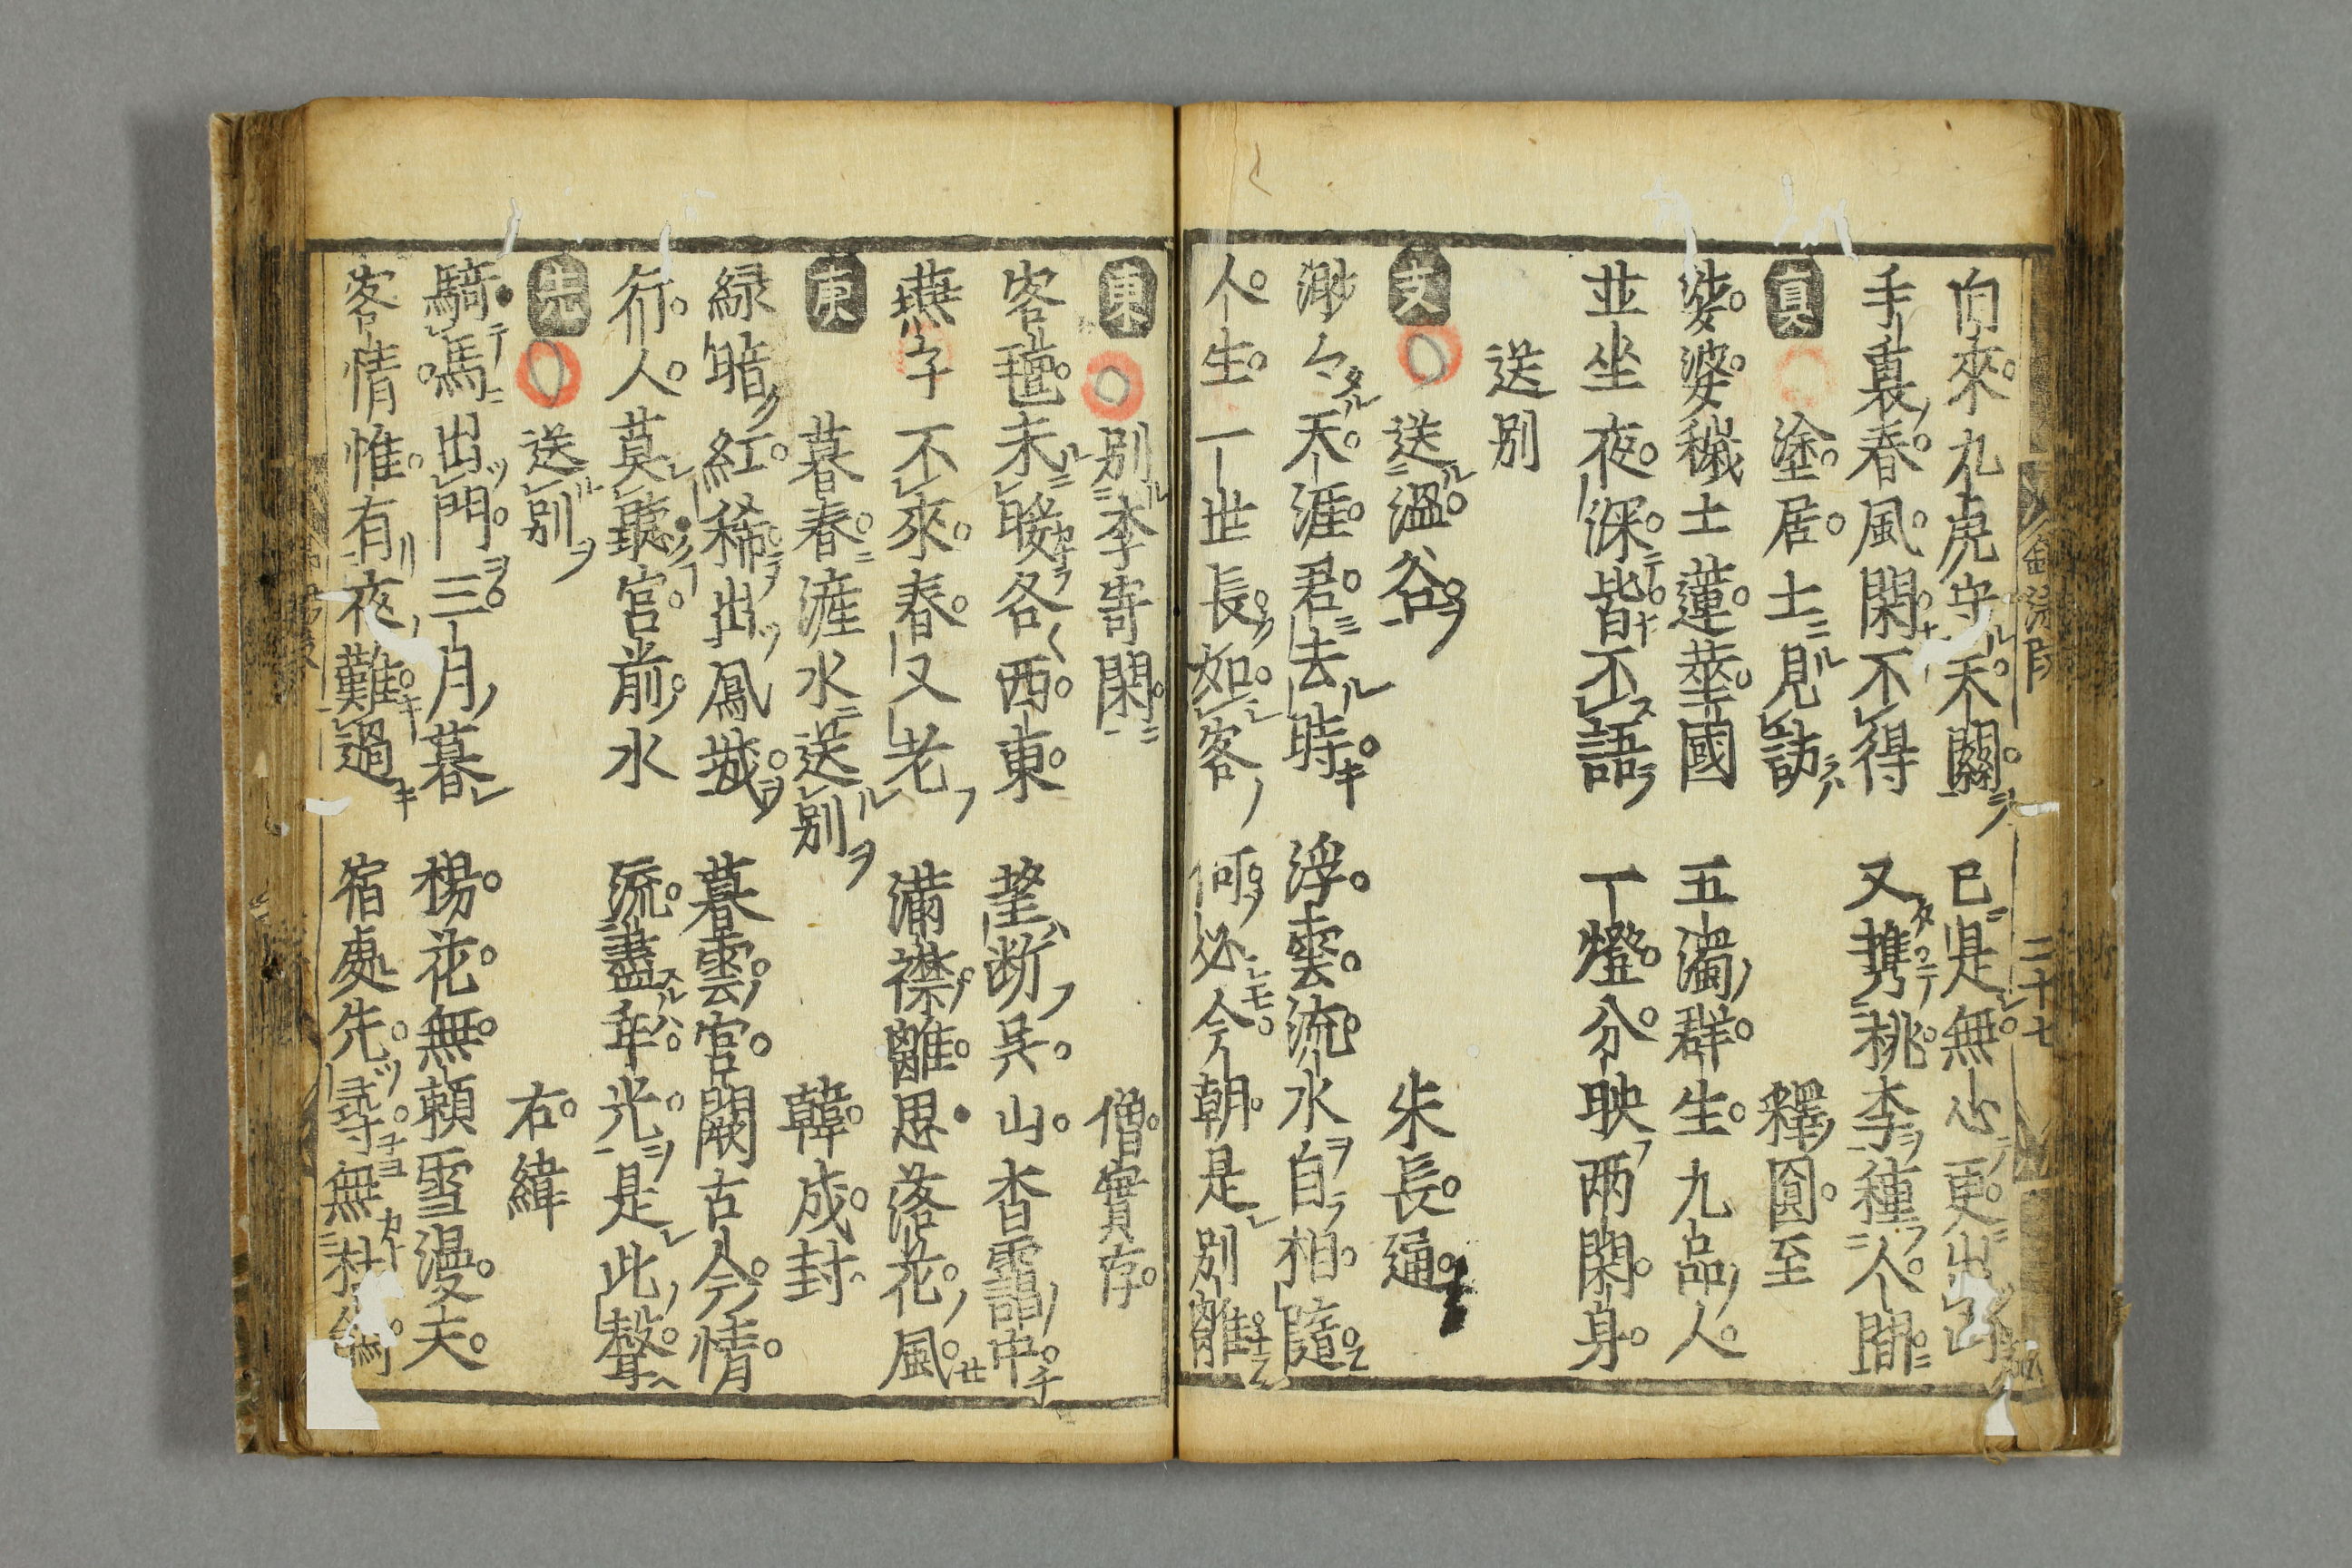 自來九虎守天關 已是無心更出山
手裏春風閑不得 又携桃李種人間
真 塗居士見訪 釋圓至
婆婆穢土蓮華國 五濁群生九品人
並坐夜深皆不語 一燈分映兩閑身
送別
支 送温谷 朱長通
渺々天涯君去時 浮雲流水自相隨
人生一世長如客 何必今朝是別離
東 別李寄閑 僧實存
客氊未暖各西東 望斷吳山杳靄中
燕子不來春又老 滿襟離思落花風
東 暮春滻水送別 韓成封
緑暗紅稀出鳳城 暮雲宮闕古今情
行人莫聽宮前水 流盡年光是此聲
先 送別 右緯
騎馬出門三月暮 楊花無賴雪漫天
客情惟有夜難過 宿處先尋無杜鵑
二十七